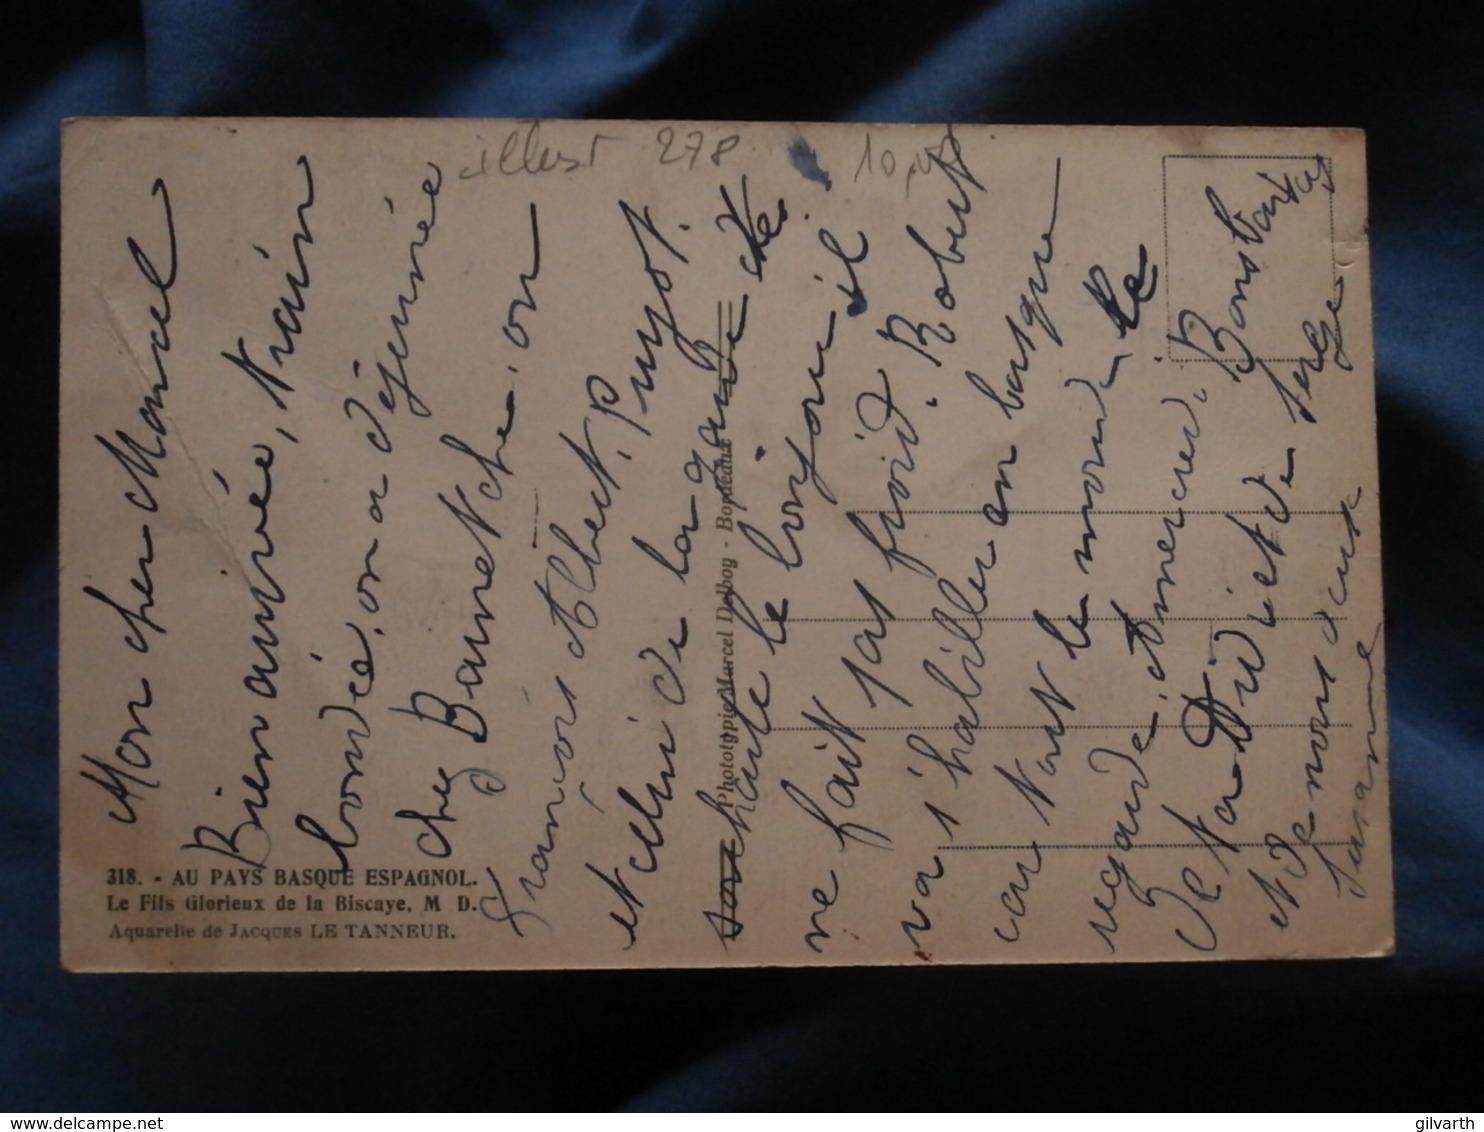 illust 278 10,-
Mon cher Marcel
Bien arrivée, train
bondée, on a déjeunée
chez Banetche, on
François Albert, Puyot.
et celui de la gare
chante le bonjour il
ne fait pas froid. Robert
va s'habiller en basque
car tout le monde le
regarde. Amercredi
Je ta Dié et de Serge
Bons baisers
et de nous deux
Suzanne
Phototypie Marcel Delboy - Bordeaux
318. - AU PAYS BASQUE ESPAGNOL.
Le Fils Glorieux de la Biscaye. M D.
Aquarelle de JACQUES LE TANNEUR.
delcampe.net
gilvarth